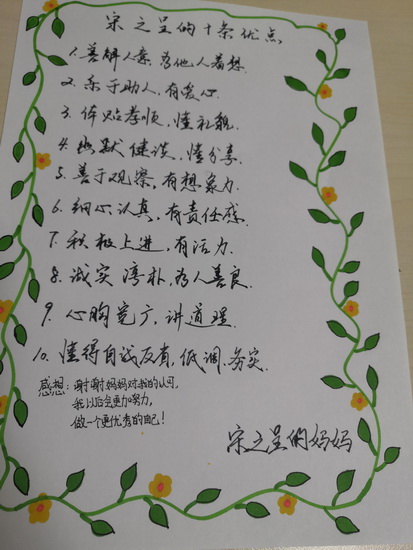 宋之呈的十条优点
1. 善解人意,为他人着想.
2. 乐于助人,有爱心.
3. 体贴孝顺,懂礼貌.
4. 幽默健谈,懂分享.
5. 善于观察,有想象力.
6. 细心认真,有责任感.
7. 积极上进,有活力.
8. 诚实淳朴,为人善良.
9. 心胸宽广,讲道理.
10. 懂得自我反省,低调务实.
感想:谢谢妈妈对我的认可,
我以后会更加努力,
做一个更优秀的自己!
宋之呈的妈妈